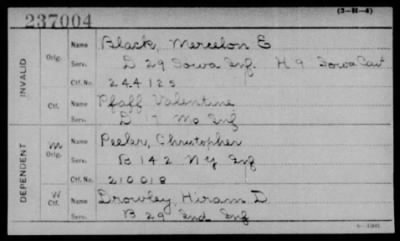 237004
(3-H-4)
INVALID
Orig.
Name Black, Mercelon E
Serv. D 29 Iowa Inf. H 9 Iowa Cav
Ctf. No. 244125
Ctf.
Name Pfaff Valentine
Serv. D 17 Mo Inf
DEPENDENT
M
Orig.
Name Peeler, Christopher
Serv. B 142 NY Inf
Ctf. No. 210018
W
Ctf.
Name Drowley, Hiram D.
Serv. B 29 Ind Inf